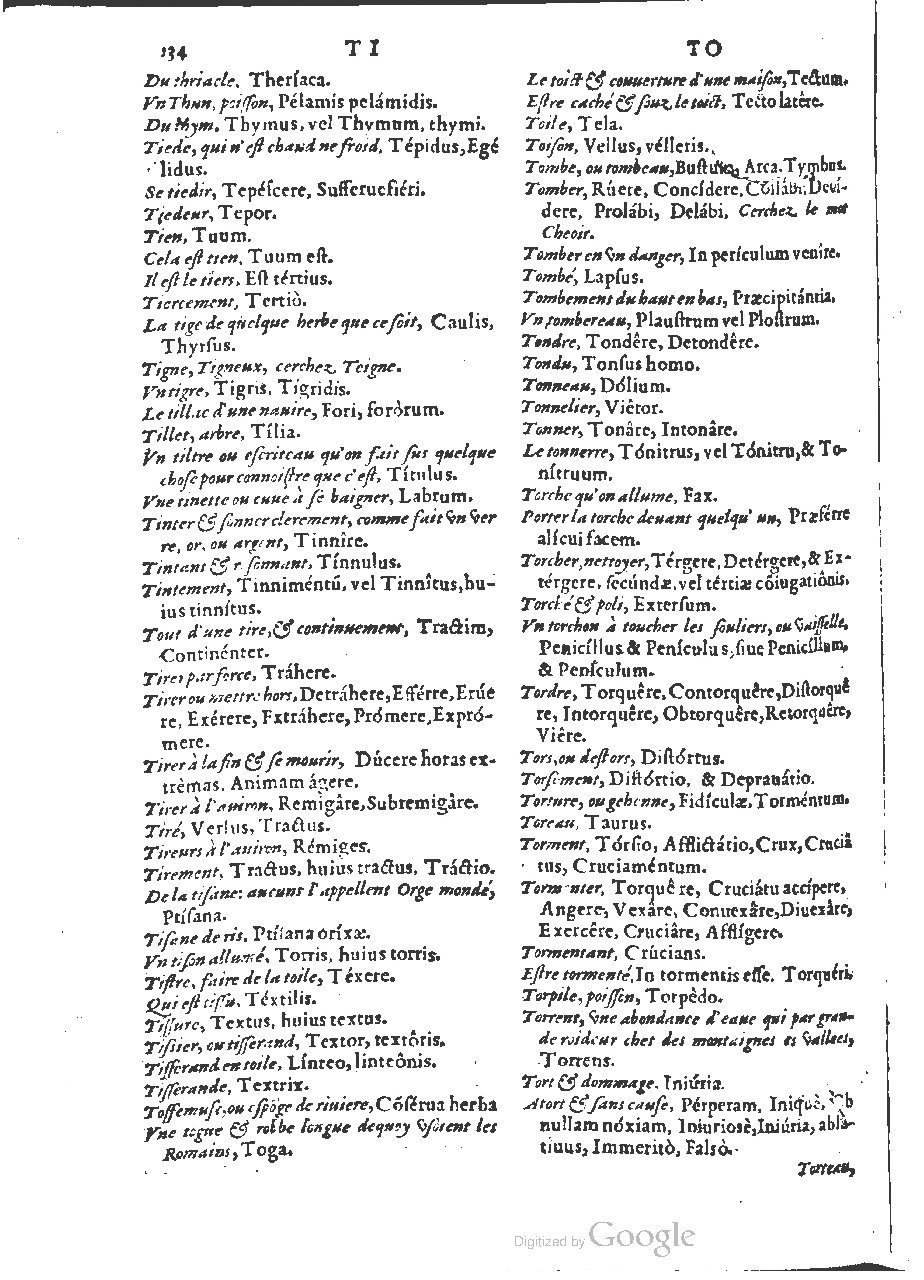 134 TI TO
Du thriacle, Theriaca.
Vn Thun, poisson, Pélamis pelámidis.
Du thym, Thymus, vel Thymum, thymi.
Tiede, qui n'est chaud ne froid, Tépidus, Egé
lidus.
Se tiedir, Tepéscere, Sufferuefíeri.
Tiedeur, Tepor.
Tien, Tuum.
Cela est tien, Tuum est.
Il est le tiers, Est tértius.
Tiercement, Tertiò.
La tige de quelque herbe que ce soit, Caulis,
Thyrsus.
Tigne, Tigneux, cerchez Teigne.
Vn tigre, Tigris, Tigridis.
Le tillac d'une nauire, Fori, forôrum.
Tillet, arbre, Tília.
Vn tiltre ou escriteau qu'on fait sus quelque
chose pour connoistre que c'est, Títulus.
Vne tinette ou cuue à se baigner, Labrum.
Tinter & sonner clerement, comme fait vn ver
re, or, ou argent, Tinnîre.
Tintant & resonnant, Tínnulus.
Tintement, Tinniméntū, vel Tinnîtus, hu-
ius tinnítus.
Tout d'une tire, & continuement, Tractim,
Continénter.
Tirer par force, Tráhere.
Tirer ou mettre hors, Detráhere, Efférre, Erúe
re, Exérere, Extráhere, Prómere, Expró-
mere.
Tirer à la fin & se mourir, Dúcere horas ex-
trêmas, Animam ágere.
Tirer à l'auiron, Remigâre, Subremigâre.
Tiré, Versus, Tractus.
Tireurs à l'auiron, Rémiges.
Tirement, Tractus, huius tractus, Tráctio.
De la tisane: aucuns l'appellent Orge mondé,
Ptísana.
Tisane de ris, Ptisana oríxæ.
Vn tison allumé, Torris, huius torris.
Tistre, faire de la toile, Téxere.
Qui est tissu, Téxtilis.
Tissure, Textus, huius textus.
Tissier, ou tisserand, Textor, textôris.
Tisserand en toile, Línteo, linteônis.
Tisserande, Textrix.
Toffemuse, ou espōge de riuiere, Cōsérua herba
Vne togue & robbe longue dequoy vsoient les
Romains, Toga.
Le toict & couuerture d'une maison, Tectum.
Estre caché & souz le toict, Tecto latêre.
Toile, Tela.
Toison, Vellus, vélleris.
Tombe, ou tombeau, Bustum, Arca, Tymbus.
Tomber, Rúere, Concídere, Cōlábi, Deci-
dere, Prolábi, Delábi, Cerchez le mot
Cheoir.
Tomber en vn danger, In perículum venîre.
Tombé, Lapsus.
Tombement du haut en bas, Præcipitántia.
Vn tombereau, Plaustrum vel Plostrum.
Tondre, Tondêre, Detondêre.
Tondu, Tonsus homo.
Tonneau, Dólium.
Tonnelier, Viêtor.
Tonner, Tonâre, Intonâre.
Le tonnerre, Tónitrus, vel Tónitru, & To-
nítruum.
Torche qu'on allume, Fax.
Porter la torche deuant quelqu' un, Præférre
alícui facem.
Torcher, nettoyer, Térgere, Detérgere, & Ex-
térgere, secúndæ, vel tértiæ cōiugatiônis.
Torché & poli, Extersum.
Vn torchon à toucher les souliers, ou vaisselle,
Penicíllus & Penículus, siue Penicíllum,
& Penículum.
Tordre, Torquêre, Contorquêre, Distorquê
re, Intorquêre, Obtorquêre, Retorquêre,
Viêre.
Tors, ou destors, Distórtus.
Torsement, Distórtio, & Deprauátio.
Torture, ou gehenne, Fidículæ, Torméntum.
Toreau, Taurus.
Torment, Tórsio, Afflictátio, Crux, Cruciá
tus, Cruciaméntum.
Tormenter, Torquêre, Cruciátu accípere,
Angere, Vexâre, Conuexâre, Diuexâre,
Exercêre, Cruciâre, Afflígere.
Tormentant, Crúcians.
Estre tormenté, In tormentis esse, Torquéri.
Torpile, poisson, Torpêdo.
Torrent, vne abondance d'eaue qui par gran-
de roideur chet des montaignes es vallees,
Torrens.
Tort & dommage, Iniúria.
A tort & sans cause, Pérperam, Iniquè, Ob
nullam nóxiam, Iniuriosè, Iniúria, abla-
tiuus, Immeritò, Falsò.
Torreau,
Digitized by Google